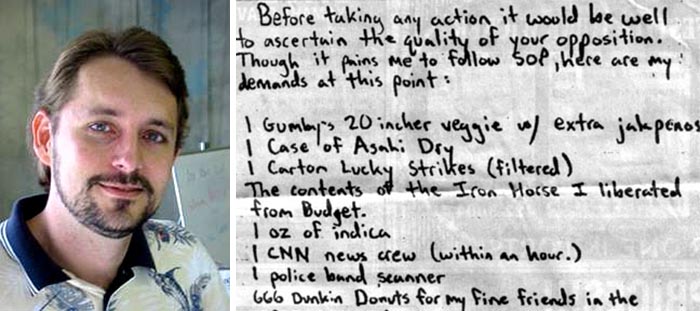 Before taking any action it would be well
to ascertain the quality of your opposition.
Though it pains me to follow SOP, here are my
demands at this point:
1 Gumby's 20 incher veggie w/ extra jalapenos
1 Case of Asahi Dry
1 Carton Lucky Strikes (filtered)
The contents of the Iron Horse I liberated
from Budget.
1 oz of indica
1 CNN news crew (within an hour.)
1 police band scanner
666 Dunkin Donuts for my fine friends in the